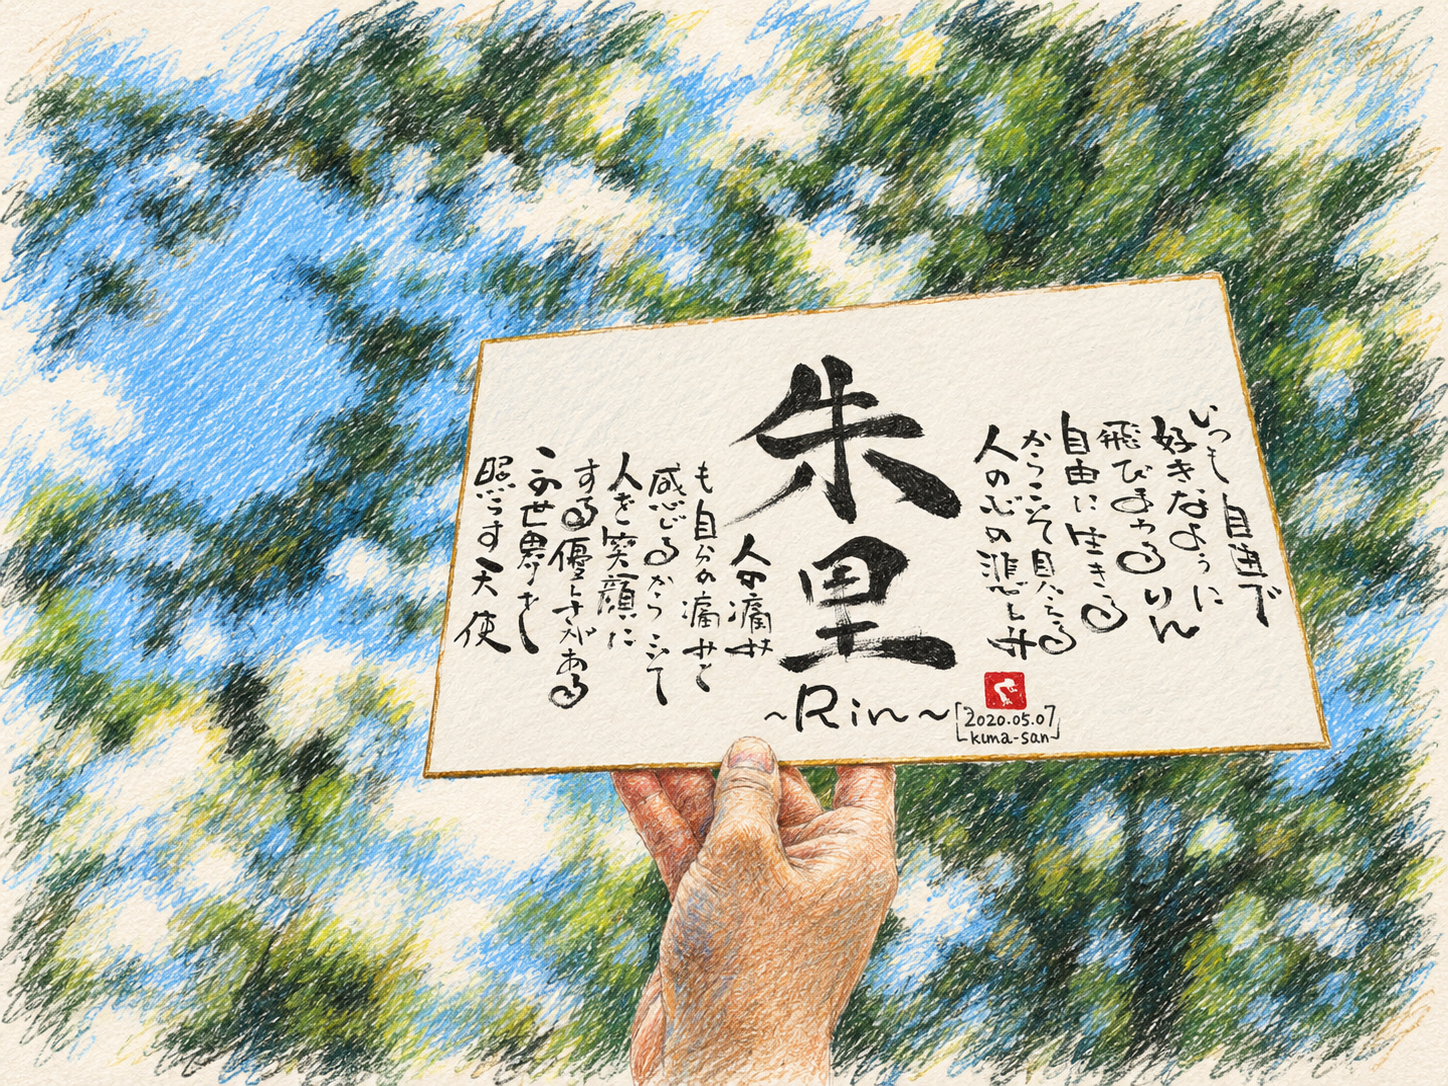 いつも自由で
好きなように
飛びまわるりん
自由に生きる
からこそ見える
人の心の悲しみ
朱里
~Rin~
2020.05.07
kuma-san
人の痛み
も自分の痛みと
感じるから
人を笑顔に
する優しさがある
この世界を
照らす天使